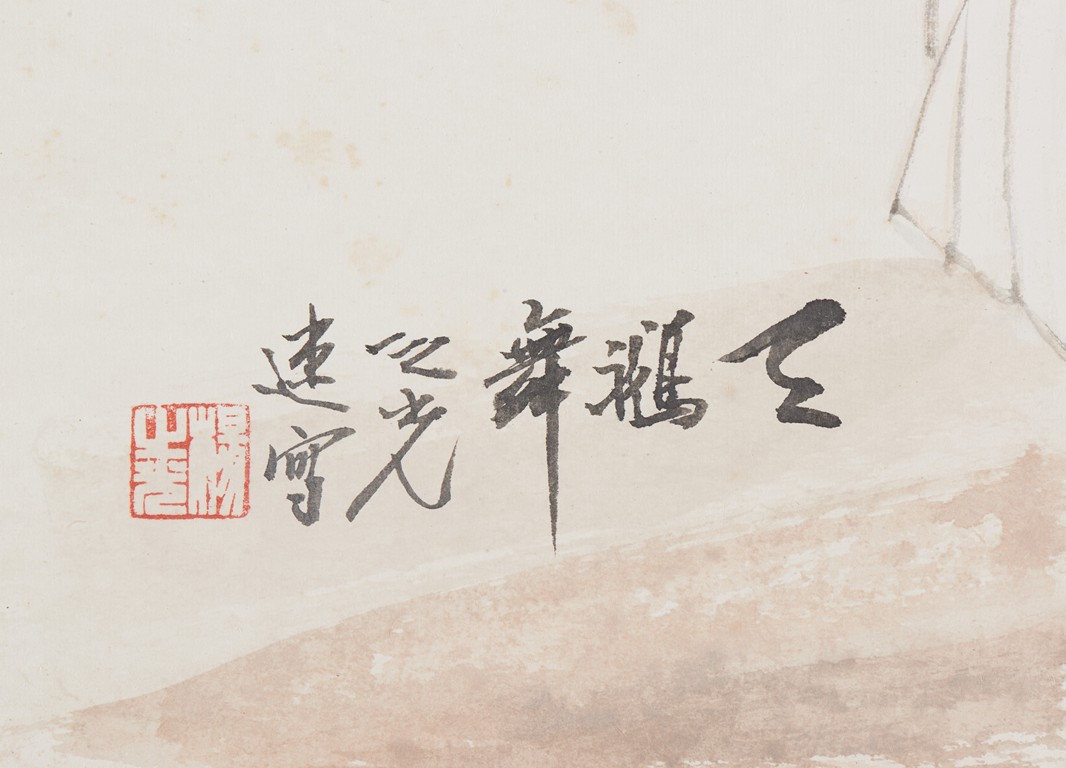 天鵝舞
之光
速寫
楊
之光